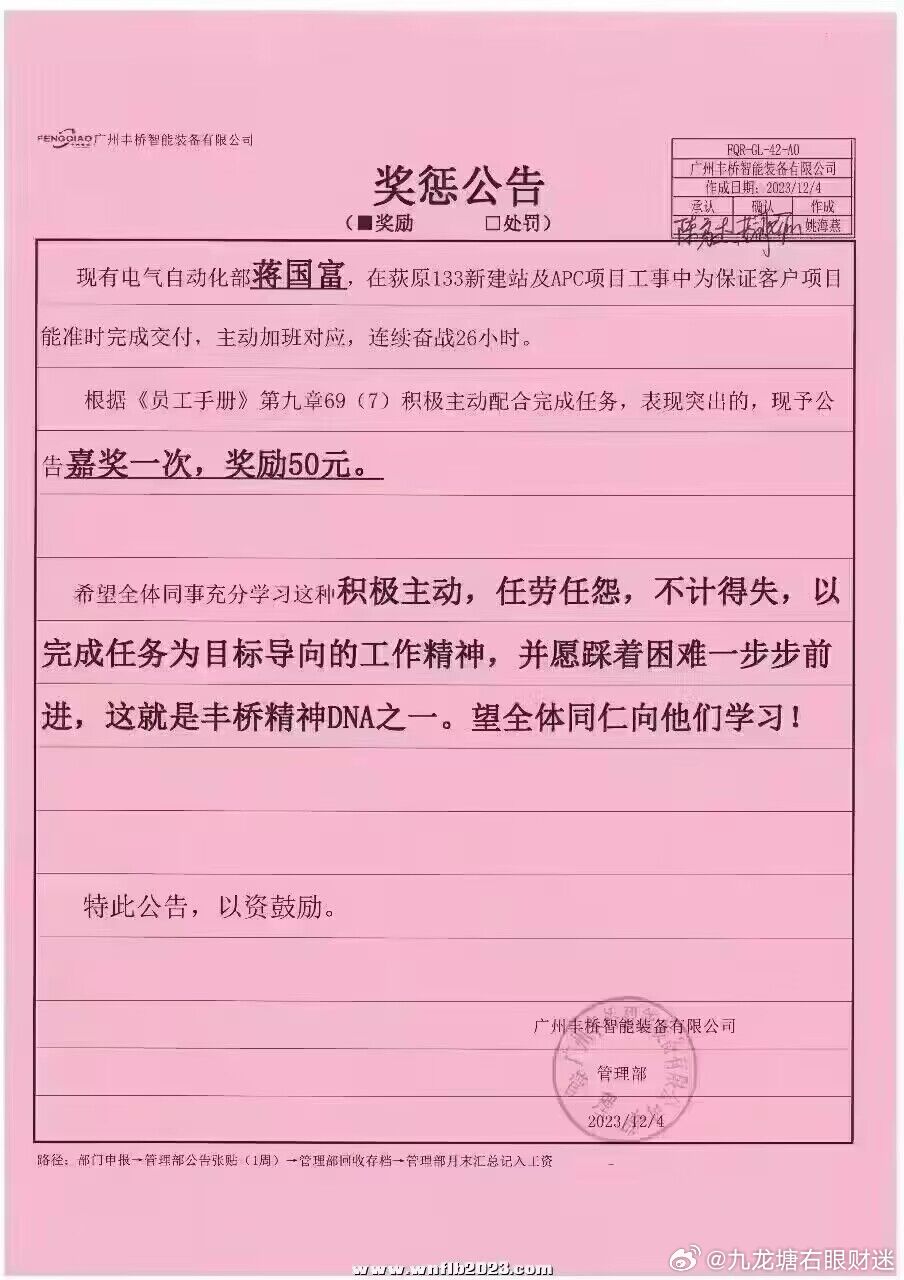 FENGQIAO 广州丰桥智能装备有限公司
FQR-GL-42-A0
广州丰桥智能装备有限公司
作成日期：2023/12/4
承认 确认 作成
姚海燕
奖惩公告
（■奖励 □处罚）
现有电气自动化部蒋国富，在荻原133新建站及APC项目工事中为保证客户项目
能准时完成交付，主动加班对应，连续奋战26小时。
根据《员工手册》第九章69（7）积极主动配合完成任务，表现突出的，现予公
告嘉奖一次，奖励50元。
希望全体同事充分学习这种积极主动，任劳任怨，不计得失，以
完成任务为目标导向的工作精神，并愿踩着困难一步步前
进，这就是丰桥精神DNA之一。望全体同仁向他们学习！
特此公告，以资鼓励。
广州丰桥智能装备有限公司
管理部
2023/12/4
路径：部门申报→管理部公告张贴（1周）→管理部回收存档→管理部月末汇总记入工资
@九龙塘右眼财迷
www.wnflb2023.com